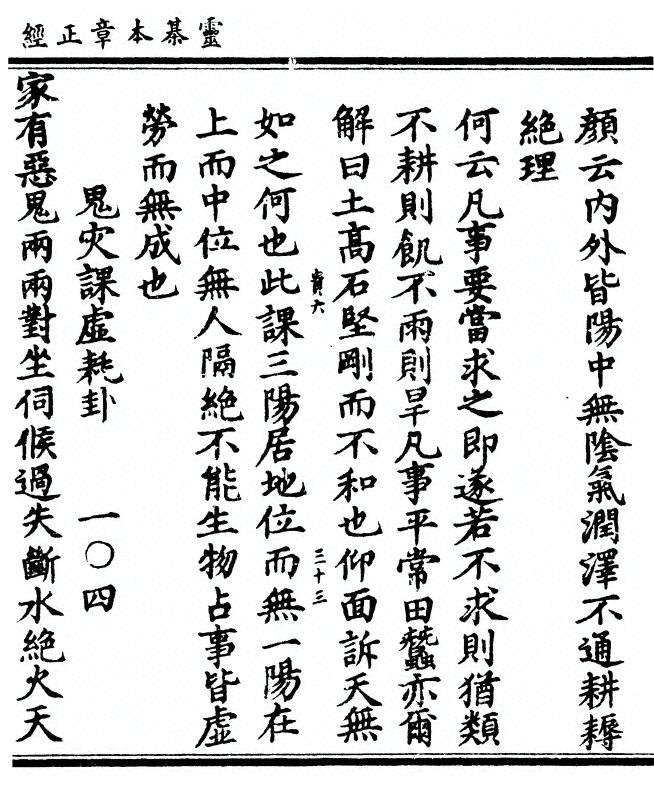 靈棊本章正經
顏云內外皆陽中無陰氣潤澤不通耕耨
絕理
何云凡事要當求之即遂若不求則猶類
不耕則飢不雨則旱凡事平常田蠶亦爾
解曰土高石堅剛而不和也仰面訴天無
貲六 三十三
如之何也此課三陽居地位而無一陽在
上而中位無人隔絕不能生物占事皆虛
勞而無成也
鬼灾課虛耗卦 一〇四
家有惡鬼兩兩對坐伺候過失斷水絕火天